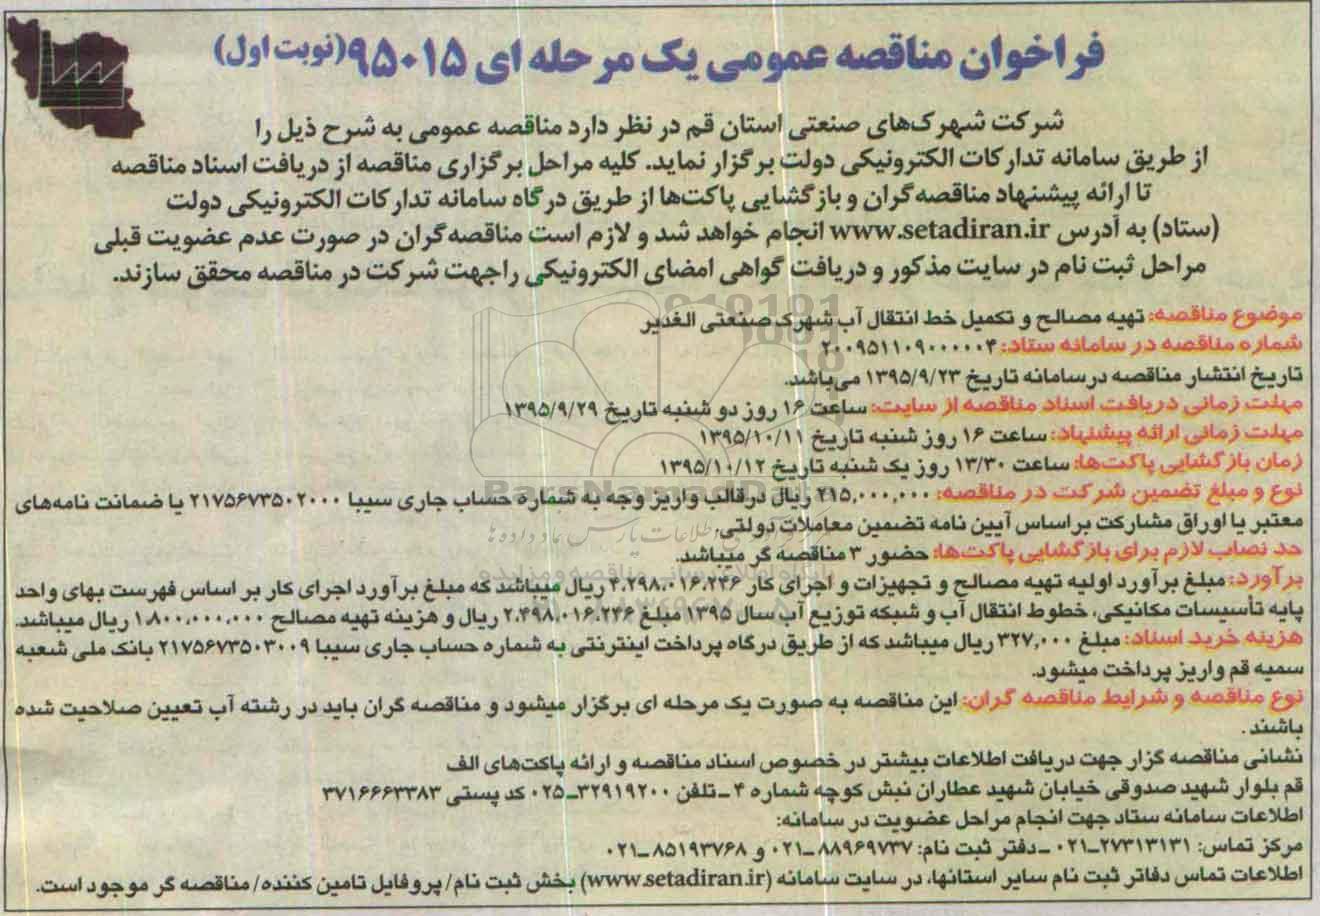 فراخوان مناقصه عمومی یک مرحله ای ۹۵۰۱۵ (نوبت اول)
شرکت شهرک‌های صنعتی استان قم در نظر دارد مناقصه عمومی به شرح ذیل را
از طریق سامانه تدارکات الکترونیکی دولت برگزار نماید. کلیه مراحل برگزاری مناقصه از دریافت اسناد مناقصه
تا ارائه پیشنهاد مناقصه‌گران و بازگشایی پاکت‌ها از طریق درگاه سامانه تدارکات الکترونیکی دولت
(ستاد) به آدرس www.setadiran.ir انجام خواهد شد و لازم است مناقصه‌گران در صورت عدم عضویت قبلی
مراحل ثبت نام در سایت مذکور و دریافت گواهی امضای الکترونیکی را جهت شرکت در مناقصه محقق سازند.
موضوع مناقصه: تهیه مصالح و تکمیل خط انتقال آب شهرک صنعتی الغدیر
شماره مناقصه در سامانه ستاد: ۲۰۰۹۵۱۱۰۹۰۰۰۰۰۴
تاریخ انتشار مناقصه درسامانه تاریخ ۱۳۹۵/۹/۲۳ می‌باشد.
مهلت زمانی دریافت اسناد مناقصه از سایت: ساعت ۱۶ روز دو شنبه تاریخ ۱۳۹۵/۹/۲۹
مهلت زمانی ارائه پیشنهاد: ساعت ۱۶ روز شنبه تاریخ ۱۳۹۵/۱۰/۱۱
زمان بازگشایی پاکت‌ها: ساعت ۱۳/۳۰ روز یک شنبه تاریخ ۱۳۹۵/۱۰/۱۲
نوع و مبلغ تضمین شرکت در مناقصه: ۲۱۵,۰۰۰,۰۰۰ ریال درقالب واریز وجه به شماره حساب جاری سیبا ۲۱۷۵۶۷۳۵۰۲۰۰۰ یا ضمانت نامه‌های
معتبر یا اوراق مشارکت براساس آیین نامه تضمین معاملات دولتی
حد نصاب لازم برای بازگشایی پاکت‌ها: حضور ۳ مناقصه گر میباشد.
برآورد: مبلغ برآورد اولیه تهیه مصالح و تجهیزات و اجرای کار ۴.۲۹۸.۰۱۶.۲۴۶ ریال میباشد که مبلغ برآورد اجرای کار بر اساس فهرست بهای واحد
پایه تأسیسات مکانیکی، خطوط انتقال آب و شبکه توزیع آب سال ۱۳۹۵ مبلغ ۲.۴۹۸.۰۱۶.۲۴۶ ریال و هزینه تهیه مصالح ۱.۸۰۰.۰۰۰.۰۰۰ ریال میباشد.
هزینه خرید اسناد: مبلغ ۳۲۷,۰۰۰ ریال میباشد که از طریق درگاه پرداخت اینترنتی به شماره حساب جاری سیبا ۲۱۷۵۶۷۳۵۰۳۰۰۹ بانک ملی شعبه
سمیه قم واریز پرداخت میشود.
نوع مناقصه و شرایط مناقصه گران: این مناقصه به صورت یک مرحله ای برگزار میشود و مناقصه گران باید در رشته آب تعیین صلاحیت شده
باشند.
نشانی مناقصه گزار جهت دریافت اطلاعات بیشتر در خصوص اسناد مناقصه و ارائه پاکت‌های الف
قم بلوار شهید صدوقی خیابان شهید عطاران نبش کوچه شماره ۴ ـ تلفن ۳۲۹۱۹۲۰۰ـ۰۲۵ کد پستی ۳۷۱۶۶۶۳۳۸۳
اطلاعات سامانه ستاد جهت انجام مراحل عضویت در سامانه:
مرکز تماس: ۲۷۳۱۳۱۳۱ـ۰۲۱ ـ دفتر ثبت نام: ۸۸۹۶۹۷۳۷ ـ۰۲۱ و ۸۵۱۹۳۷۶۸ ـ۰۲۱
اطلاعات تماس دفاتر ثبت نام سایر استانها، در سایت سامانه (www.setadiran.ir) بخش ثبت نام/ پروفایل تامین کننده/ مناقصه گر موجود است.
ParsNamadData